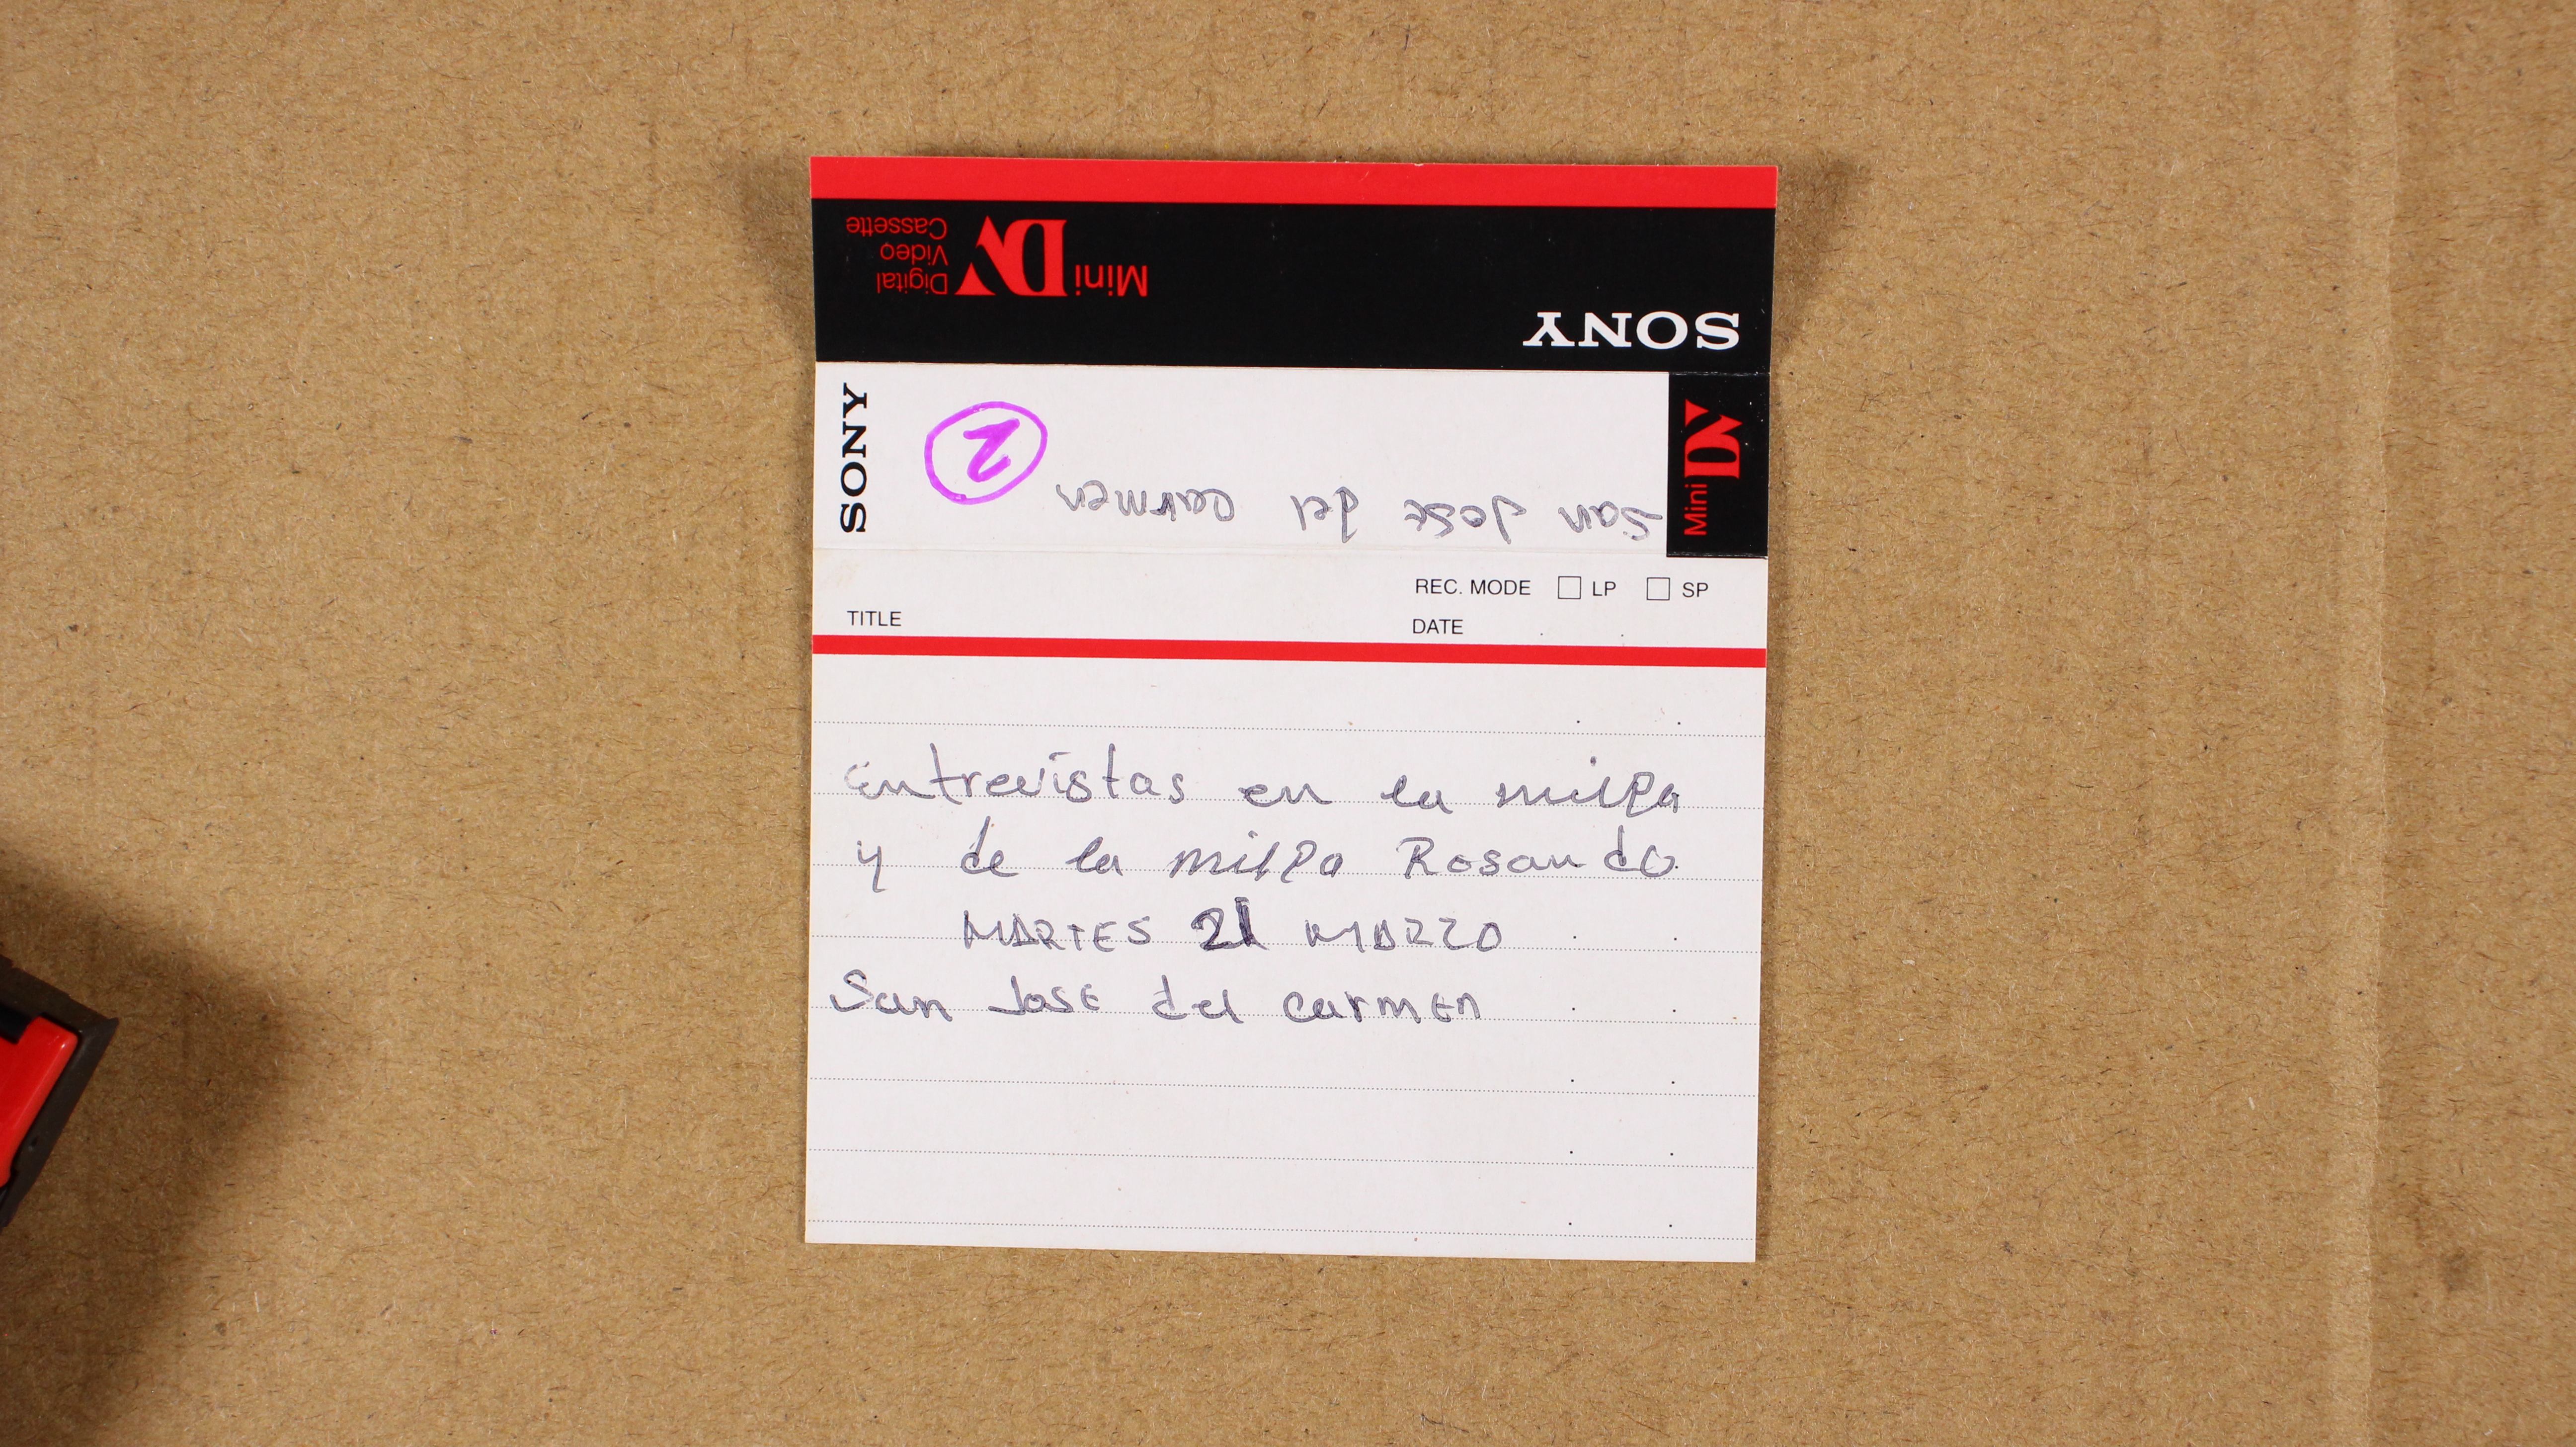 Mini DV Digital
Video
Cassette
SONY
SONY
2
San Jose del carmen
Mini DV
REC. MODE LP SP
TITLE
DATE
Entrevistas en la milpa
y de la milpa Rosando
MARTES 21 MARZO
San Jose del carmen